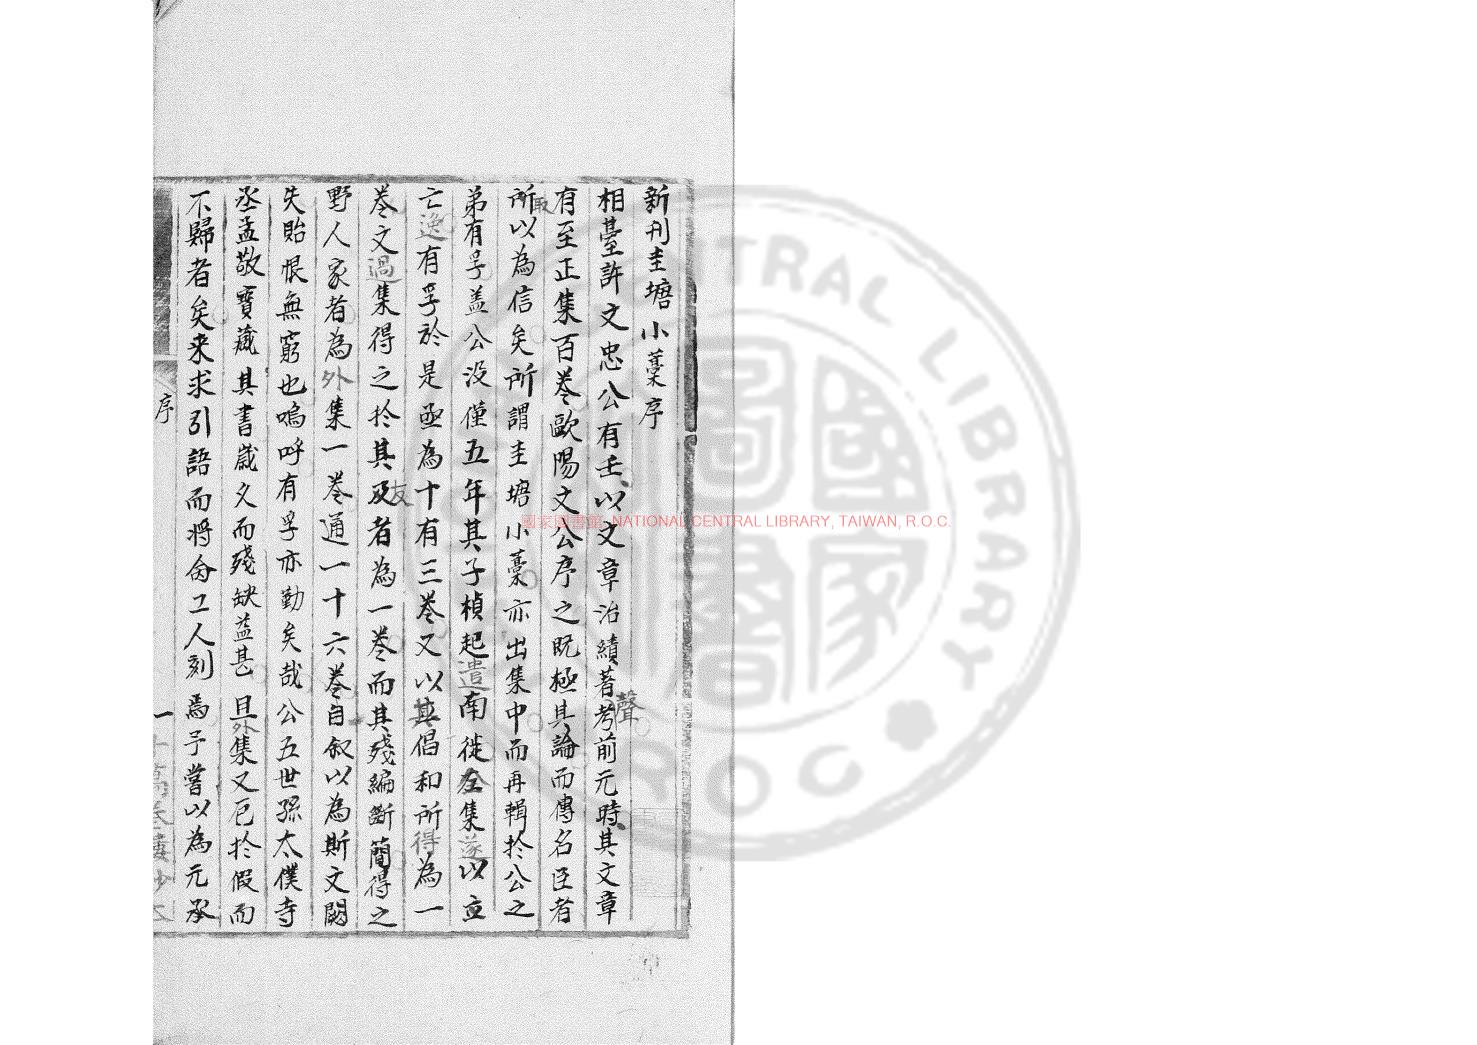 新刊圭塘小藁序
相臺許文忠公有壬以文章治績著聲考前元時其文章
有至正集百卷歐陽文公序之既極其論而傳名臣者
所取以為信矣所謂圭塘小藁亦出集中而再輯於公之
弟有孚盖公没僅五年其子楨起遣南徙全集遂以立
亡逸有孚於是亟為十有三卷又以其倡和所得為一
卷文過集得之於其及友者為一卷而其殘編斷簡得之
野人家者為外集一卷通一十六卷自叙以為斯文闕
失貽恨無窮也嗚呼有孚亦勤矣哉公五世孫太僕寺
丞孟敬寶藏其書歲久而殘缺益甚且外集又厄於假而
不歸者矣来求引語而將命工人刻焉予嘗以為元承
序
一
國家圖書館 NATIONAL CENTRAL LIBRARY, TAIWAN, R.O.C.
CENTRAL LIBRARY
R O C